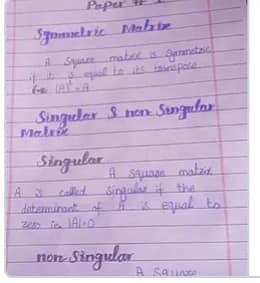 Paper # 1
Symmetric Matrix
A Square matrix is Symmetric
if it is equal to its transpose
i.e (A)ᵗ = A
Singular & non Singular
Matrix
Singular
A Square matrix
A is called Singular if the
determinant of A is equal to
zero i.e |A|=0
non Singular
A Square